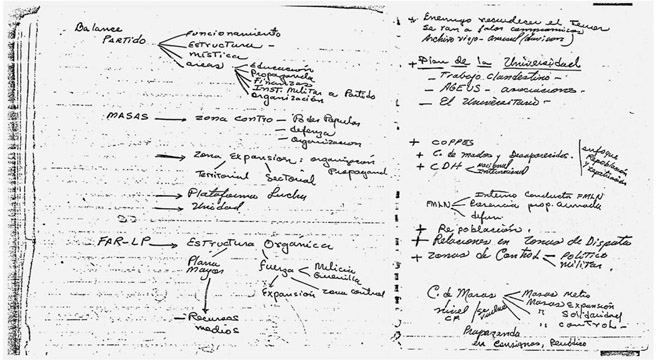 Balance
PARTIDO
funcionamiento
ESTRUCTURA -
mística
areas
Educación
Propaganda
Finanzas
Inst. Militar a Partido
organización
MASAS → zona contro - Poder Popular
- defensa
- organización
→ zona Expansion: organización
Propagand
Territorial Sectorial
→ Plataforma Lucha
→ Unidad
FAR-LP → ESTRUCTURA Orgánica
Plana Mayor
fuerza
Milicia
Guerrilla
Expansión
zona control
- Recursos
medios
+ Enemigo
Archivo viejo -
+ Plan de la Universidad
- Trabajo clandestino -
- AGEUS - asociaciones -
- El Universitario -
+ COPPES
+ C. de madres y Desaparecidos.
+ CDH
nacional
internacional
enfoque
Repoblación
y
FMLN
Interno conducta FMLN
prop. armada
+ Repoblación.
+ Relaciones en zonas de Disputa
+ zonas de Control - político
militar.
C. de Masas
Masas Metro
Masas Expansión
" Solidaridad
" control -
nivel
Propaganda